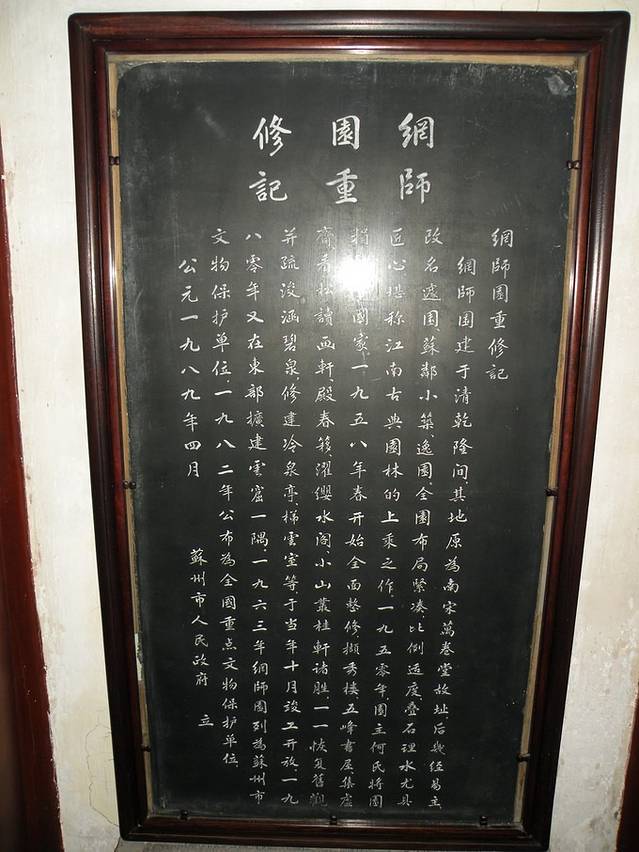 網師
園重
修記
網師園重修記
網師園建于清乾隆间,其地原為南宋萬卷堂故址,后幾经易主
改名遽园、蘇鄰小築、逸園.全園布局緊凑,比例适度,叠石理水尤具
匠心,堪称江南古典園林的上乘之作.一九五零年園主何氏将園
捐國家,一九五八年春开始全面整修,撷秀楼、五峰書屋、集虚
齋、看松讀画軒、殿春簃、濯缨水阁、小山叢桂軒诸胜,一一恢复舊觀
并疏浚涵碧泉,修建冷泉亭、梯雲室等,于当年十月竣工开放.一九
八零年又在東部擴建雲窟一隅.一九六三年網師園列為蘇州市
文物保护单位,一九八二年公布為全國重点文物保护单位.
公元一九八九年四月
蘇州市人民政府 立